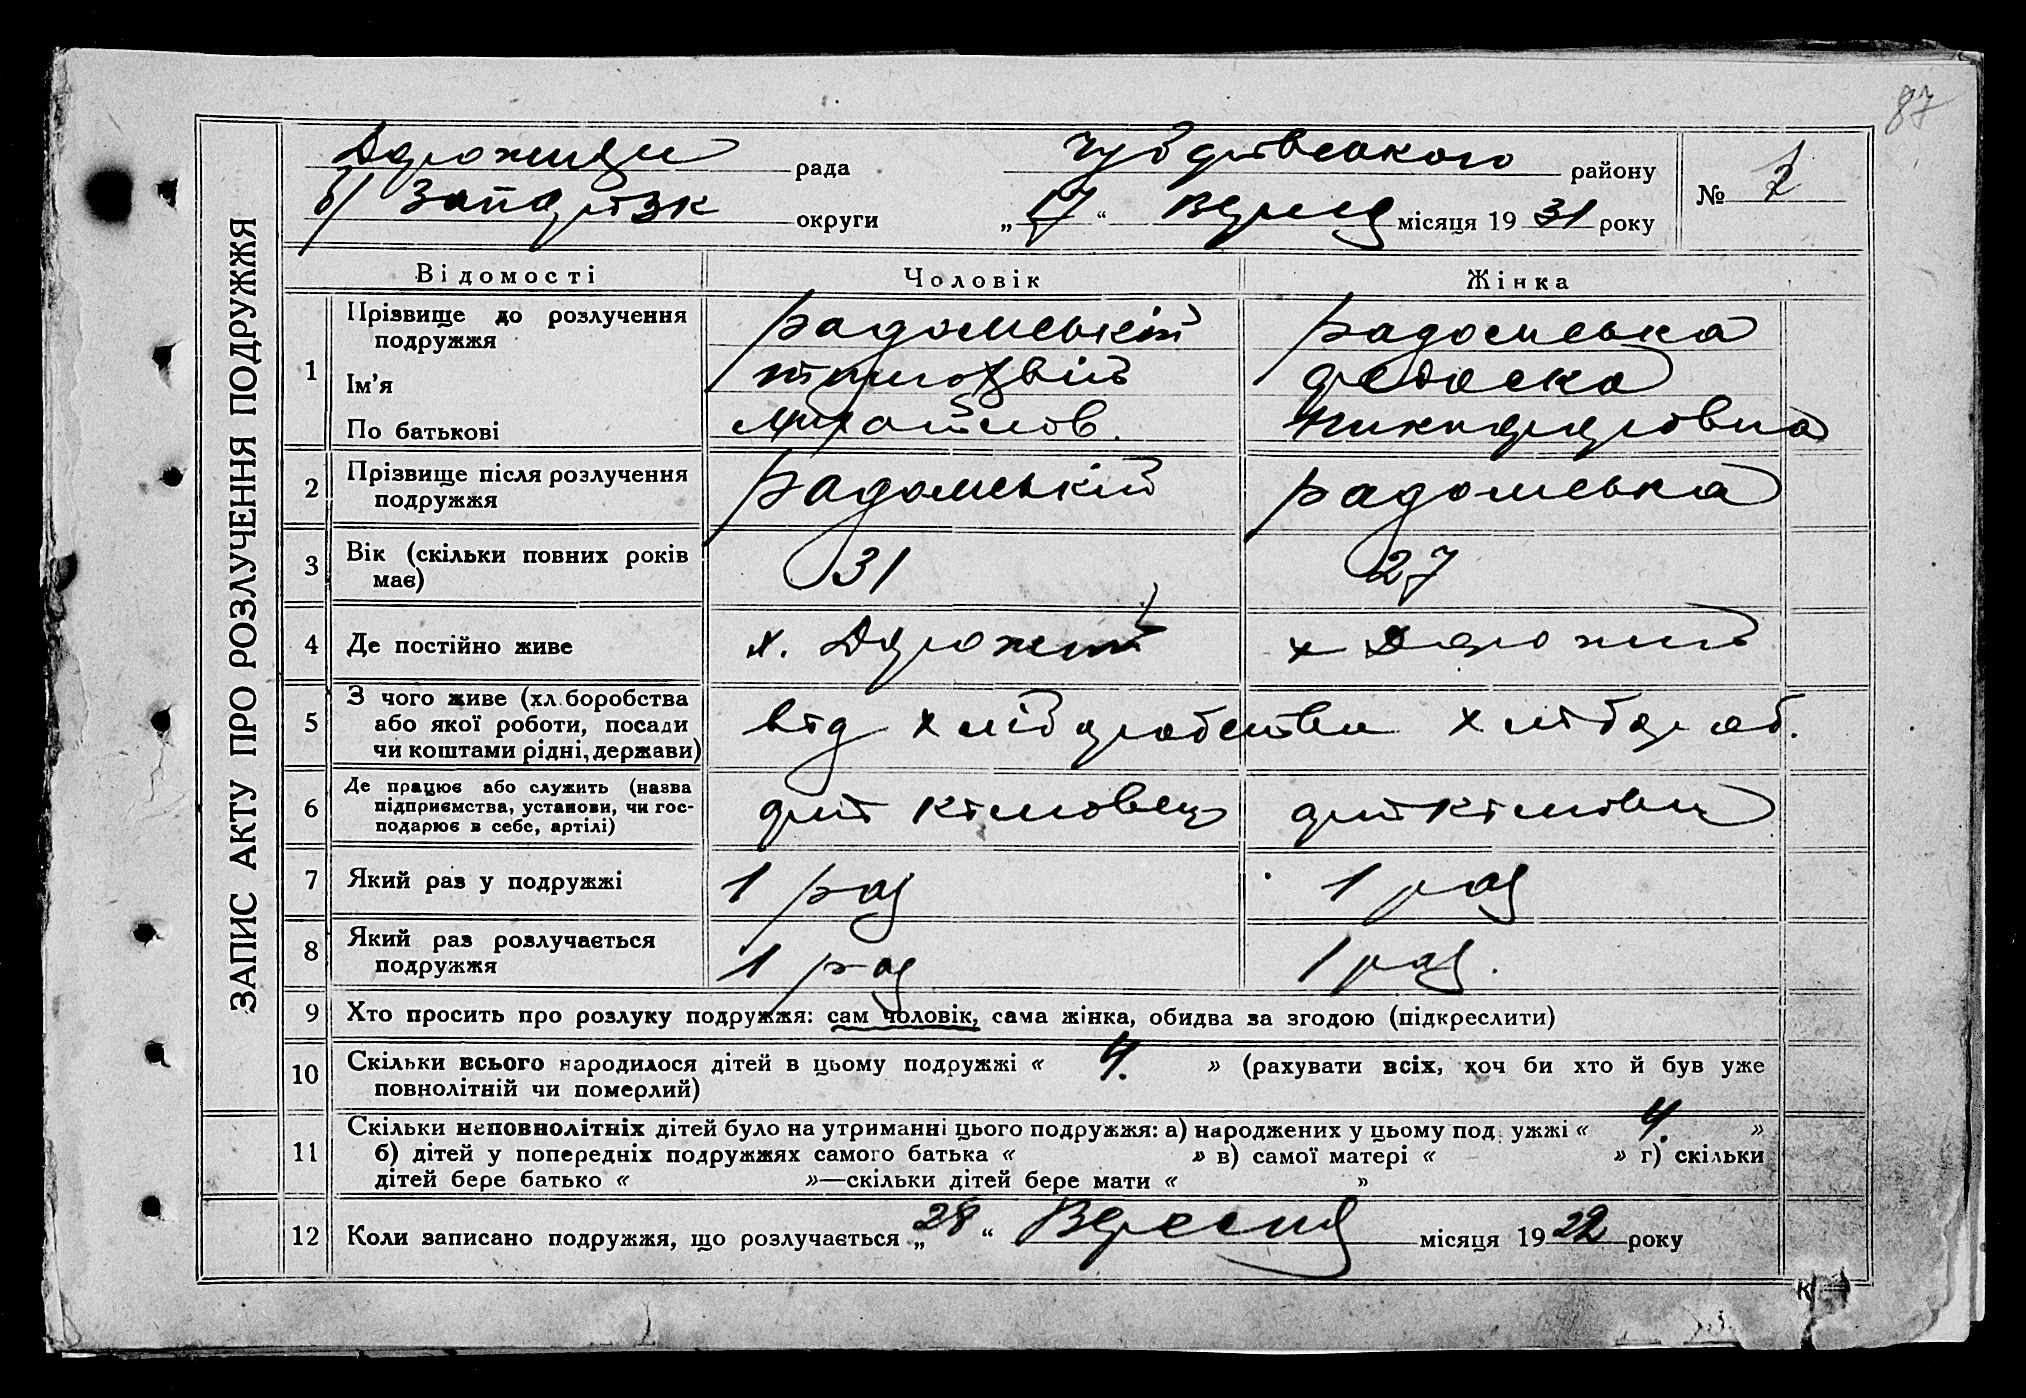 87
рада
Чубарівського району
№ 7
округи
„17“ Вересня місяця 1931 року
ЗАПИС АКТУ ПРО РОЗЛУЧЕННЯ ПОДРУЖЖЯ
Відомості Чоловік Жінка
1 Прізвище до розлучення подружжя Радомський Радомська
Ім'я Федоска
По батькові Михайлов. Никифоровна
2 Прізвище після розлучення подружжя Радомський Радомська
3 Вік (скільки повних років має) 31 27
4 Де постійно живе х. х
5 З чого живе (хліборобства або якої роботи, посади чи коштами рідні, держави) від хліборобства хлібороб.
6 Де працює або служить (назва підприємства, установи, чи господарює в себе, артілі)
7 Який раз у подружжі 1 раз 1 раз
8 Який раз розлучається подружжя 1 раз 1 раз.
9 Хто просить про розлуку подружжя: сам чоловік, сама жінка, обидва за згодою (підкреслити)
10 Скільки всього народилося дітей в цьому подружжі « 4. » (рахувати всіх, хоч би хто й був уже
повнолітній чи померлий)
11 Скільки неповнолітніх дітей було на утриманні цього подружжя: а) народжених у цьому подружжі « 4. »
б) дітей у попередніх подружжях самого батька « » в) самої матері « » г) скільки
дітей бере батько « »—скільки дітей бере мати « »
12 Коли записано подружжя, що розлучається „28“ Вересня місяця 1922 року